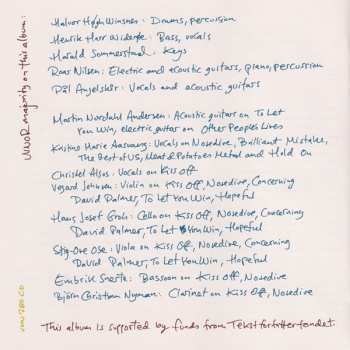 UNOR majority on this album:
Halvor Høgh Winsnes: Drums, percussion
Henrik Harr Widerøe: Bass, vocals
Harald Sommerstad: Keys
Roar Nilsen: Electric and acoustic guitars, piano, percussion
Pål Angelskår: Vocals and acoustic guitars
Martin Nordahl Andersen: Acoustic guitars on To Let
You Win, electric guitar on Other People's Lives
Kristine Marie Aasvang: Vocals on Nosedive, Brilliant Mistakes,
The Best of US, Meat & Potatoes Metal and Hold On
Christel Alsos: Vocals on Kiss Off
Vegard Johnsen: Violin on Kiss Off, Nosedive, Concerning
David Palmer, To Let You Win, Hopeful
Hans Josef Groh: Cello on Kiss Off, Nosedive, Concerning
David Palmer, To Let You Win, Hopeful
Stig-Ove Ose: Viola on Kiss Off, Nosedive, Concerning
David Palmer, To Let You Win, Hopeful
Embrik Snerte: Bassoon on Kiss Off, Nosedive
Björn Christian Nyman: Clarinet on Kiss Off, Nosedive
This album is supported by funds from Tekstforfatterfondet.